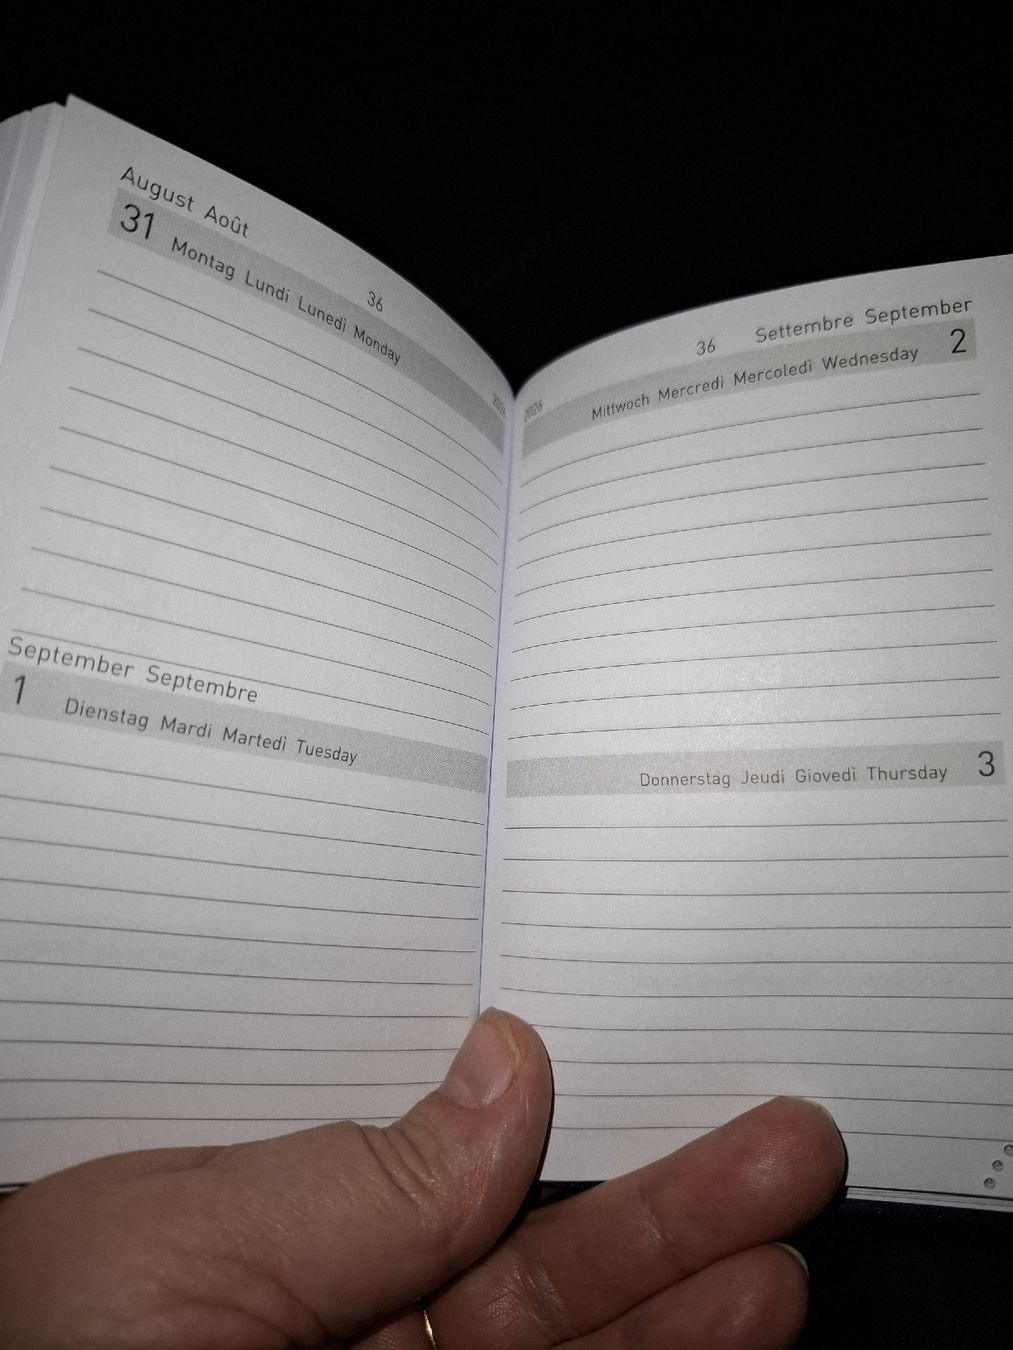 August Août
31 Montag Lundi Lunedì Monday
36
2026
September Septembre
1 Dienstag Mardi Martedì Tuesday
36 Settembre September
2026 Mittwoch Mercredi Mercoledì Wednesday 2
Donnerstag Jeudi Giovedì Thursday 3